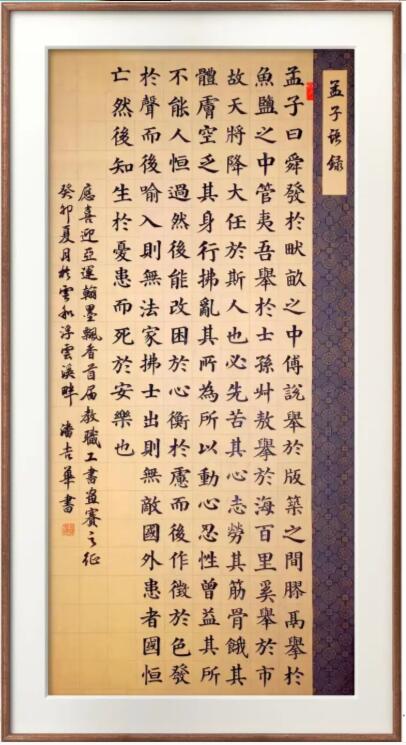 孟子語錄
孟子曰舜發於畎畝之中傅說舉於版築之間膠鬲舉於
魚鹽之中管夷吾舉於士孫叔敖舉於海百里奚舉於市
故天將降大任於斯人也必先苦其心志勞其筋骨餓其
體膚空乏其身行拂亂其所為所以動心忍性曾益其所
不能人恒過然後能改困於心衡於慮而後作徵於色發
於聲而後喻入則無法家拂士出則無敵國外患者國恒
亡然後知生於憂患而死於安樂也
應喜迎亞運翰墨飄香首届教職工書畫賽之征
癸卯夏月於雲和浮雲溪畔 潘吉華書